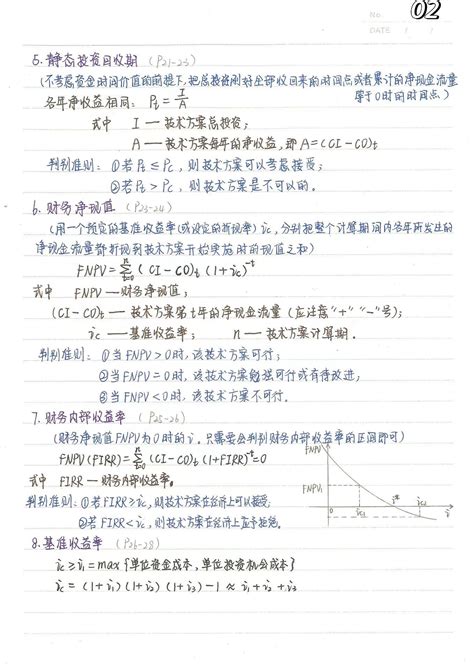 No.
02
DATE / /
5. 静态投资回收期 (P21-23)
(不考虑资金时间价值的前提下,把总投资刚好全部收回来的时间点或者累计的净现金流量
等于0时的时间点)
各年净收益相同: Pt = I/A
式中 I — 技术方案总投资;
A — 技术方案每年的净收益,即 A=(CI-CO)t
判别准则: ①若Pt ≤ Pc, 则技术方案可以考虑接受;
②若Pt > Pc, 则技术方案是不可以的.
6. 财务净现值 (P23-24)
(用一个预定的基准收益率(或设定的折现率) ic, 分别把整个计算期间内各年所发生的
净现金流量都折现到技术方案开始实施时的现值之和)
FNPV = Σ(t=0→n) (CI-CO)t (1+ic)^-t
式中 FNPV — 财务净现值;
(CI-CO)t — 技术方案第t年的净现金流量 (应注意"+" "-"号);
ic — 基准收益率; n — 技术方案计算期.
判别准则: ①当FNPV>0时, 该技术方案可行;
②当FNPV=0时, 该技术方案勉强可行或有待改进;
③当FNPV<0时, 该技术方案不可行.
7. 财务内部收益率 (P25-26)
(财务净现值FNPV为0时的i. 只需要会判别财务内部收益率的区间即可)
FNPV(FIRR)=Σ(t=0→n) (CI-CO)t (1+FIRR)^-t=0
式中 FIRR — 财务内部收益率.
判别准则: ①若FIRR≥ic, 则技术方案在经济上可以接受;
②若FIRR<ic, 则技术方案在经济上应予拒绝.
FNPV
FNPV1
0
ic1
i*
ic2
i
8. 基准收益率 (P26-28)
ic ≥ i1 = max {单位资金成本, 单位投资机会成本}
ic = (1+i1)(1+i2)(1+i3)-1 ≈ i1+i2+i3